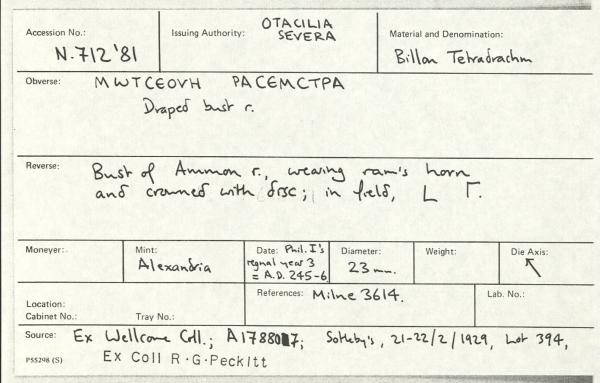 Accession No.:
N.712'81
Issuing Authority: OTACILIA
SEVERA
Material and Denomination:
Billon Tetradrachm
Obverse: MWTCEOVH PACEMCTPA
Draped bust r.
Reverse: Bust of Ammon r., wearing ram's horn
and crowned with disc; in field, L Γ.
Moneyer:
Mint:
Alexandria
Date: Phil. I's
regnal year 3
= A.D. 245-6
Diameter:
23 mm.
Weight:
Die Axis:
↖
Location:
Cabinet No.: Tray No.:
References: Milne 3614.
Lab. No.:
Source: Ex Wellcome Coll.; A178807; Sotheby's, 21-22/2/1929, Lot 394,
P55298 (S) Ex Coll R.G.Peckitt